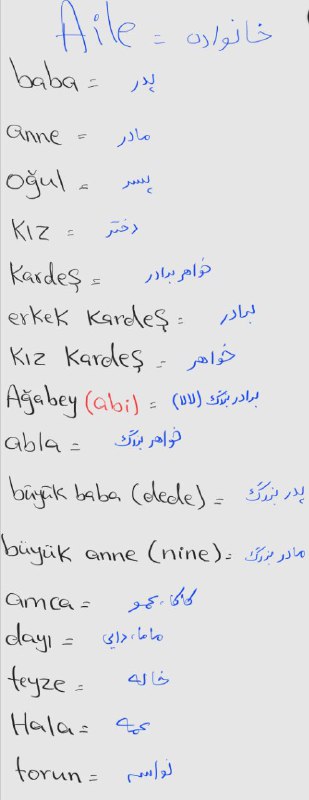 Aile = خانواده
baba = پدر
anne = مادر
oğul = پسر
Kız = دختر
Kardeş = خواهر برادر
erkek Kardeş = برادر
Kız Kardeş = خواهر
Ağabey (abi) = برادر بزرگ (لالا)
abla = خواهر بزرگ
büyük baba (dede) = پدر بزرگ
büyük anne (nine) = مادر بزرگ
amca = کاکا، عمو
dayı = ماما، دایی
teyze = خاله
Hala = عمه
torun = نواسه